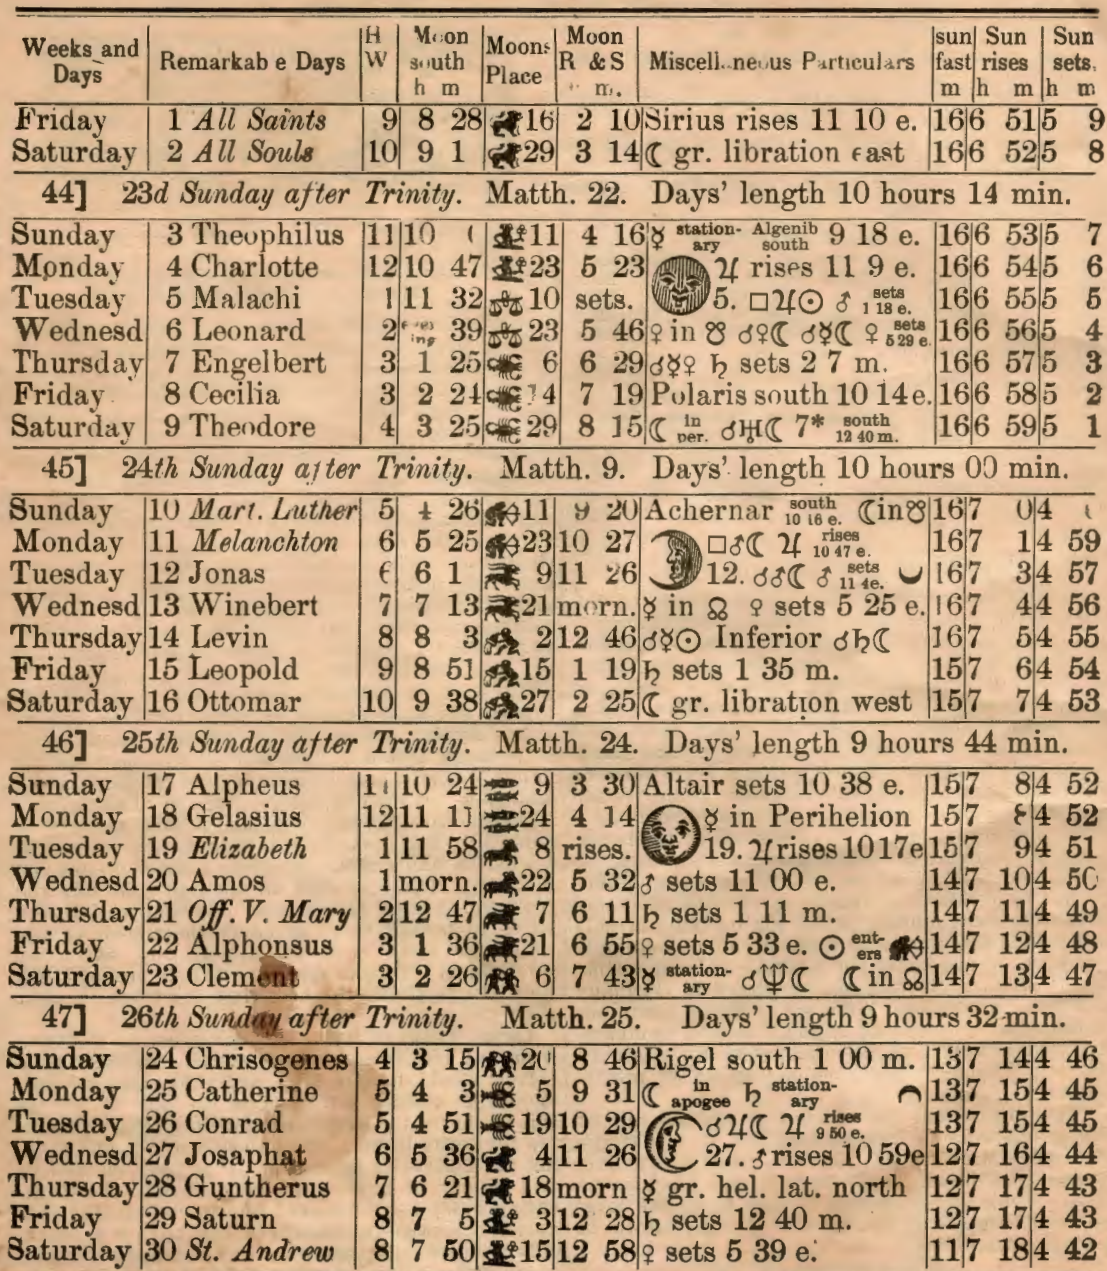 Weeks and Days | Remarkab e Days | H W | Moon south h m | Moons Place | Moon R & S m. | Miscellaneous Particulars | sun fast m | Sun rises h m | Sun sets, h m
Friday 1 All Saints 9 8 28 16 2 10 Sirius rises 11 10 e. 16 6 51 5 9
Saturday 2 All Souls 10 9 1 29 3 14 ☾ gr. libration east 16 6 52 5 8
44] 23d Sunday after Trinity. Matth. 22. Days' length 10 hours 14 min.
Sunday 3 Theophilus 11 10 11 4 16 ☿ station-ary Algenib south 9 18 e. 16 6 53 5 7
Monday 4 Charlotte 12 10 47 23 5 23 ♃ rises 11 9 e. 16 6 54 5 6
Tuesday 5 Malachi 1 11 32 ♎ 10 sets. 5. □♃☉ ♂ sets 1 18 e. 16 6 55 5 5
Wednesd 6 Leonard 2 39 ♎ 23 5 46 ♀ in ☋ ☌♀☾ ☌☿☾ ♀ sets 5 29 e. 16 6 56 5 4
Thursday 7 Engelbert 3 1 25 6 6 29 ☌☿♀ ♄ sets 2 7 m. 16 6 57 5 3
Friday 8 Cecilia 3 2 24 7 19 Polaris south 10 14 e. 16 6 58 5 2
Saturday 9 Theodore 4 3 25 29 8 15 ☾ in per. ☌♅☾ 7* south 12 40 m. 16 6 59 5 1
45] 24th Sunday after Trinity. Matth. 9. Days' length 10 hours 00 min.
Sunday 10 Mart. Luther 5 4 26 11 9 20 Achernar south 10 16 e. ☾ in ☋ 16 7 0 4
Monday 11 Melanchton 6 5 25 23 10 27 □♂☾ ♃ rises 10 47 e. 16 7 1 4 59
Tuesday 12 Jonas 6 6 1 9 11 26 12. ☌♂☾ ♂ sets 11 4e. 16 7 3 4 57
Wednesd 13 Winebert 7 7 13 21 morn. ☿ in ☊ ♀ sets 5 25 e. 16 7 4 4 56
Thursday 14 Levin 8 8 3 2 12 46 ☌☿☉ Inferior ☌♄☾ 16 7 5 4 55
Friday 15 Leopold 9 8 51 15 1 19 ♄ sets 1 35 m. 15 7 6 4 54
Saturday 16 Ottomar 10 9 38 27 2 25 ☾ gr. libration west 15 7 7 4 53
46] 25th Sunday after Trinity. Matth. 24. Days' length 9 hours 44 min.
Sunday 17 Alpheus 11 10 24 9 3 30 Altair sets 10 38 e. 15 7 8 4 52
Monday 18 Gelasius 12 11 11 24 4 14 ☿ in Perihelion 15 7 8 4 52
Tuesday 19 Elizabeth 1 11 58 8 rises. 19. ♃ rises 10 17 e 15 7 9 4 51
Wednesd 20 Amos 1 morn. 22 5 32 ♂ sets 11 00 e. 14 7 10 4 50
Thursday 21 Off. V. Mary 2 12 47 7 6 11 ♄ sets 1 11 m. 14 7 11 4 49
Friday 22 Alphonsus 3 1 36 21 6 55 ♀ sets 5 33 e. ☉ ent-ers 14 7 12 4 48
Saturday 23 Clement 3 2 26 6 7 43 ☿ station-ary ☌♆☾ ☾ in ☊ 14 7 13 4 47
47] 26th Sunday after Trinity. Matth. 25. Days' length 9 hours 32 min.
Sunday 24 Chrisogenes 4 3 15 20 8 46 Rigel south 1 00 m. 13 7 14 4 46
Monday 25 Catherine 5 4 3 5 9 31 ☾ in apogee ♄ station-ary 13 7 15 4 45
Tuesday 26 Conrad 5 4 51 19 10 29 ☌♃☾ ♃ rises 9 50 e. 13 7 15 4 45
Wednesd 27 Josaphat 6 5 36 4 11 26 27. ♂ rises 10 59 e 12 7 16 4 44
Thursday 28 Guntherus 7 6 21 18 morn ☿ gr. hel. lat. north 12 7 17 4 43
Friday 29 Saturn 8 7 5 3 12 28 ♄ sets 12 40 m. 12 7 17 4 43
Saturday 30 St. Andrew 8 7 50 15 12 58 ♀ sets 5 39 e. 11 7 18 4 42